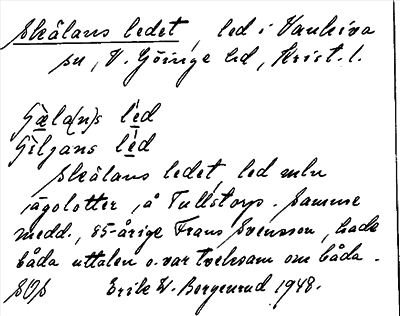 Skälans ledet, led i Vankiva
sn, V. Göinge hd, Krist. l.
Gæla(n)s lèd
Giljans lèd
Skälans ledet, led mln
ägolotter, å Tullstorp. Samme
medd., 85-årige Frans Svensson, hade
båda uttalen o. var tveksam om båda.
SOS Erik W. Bergenrud 1948.